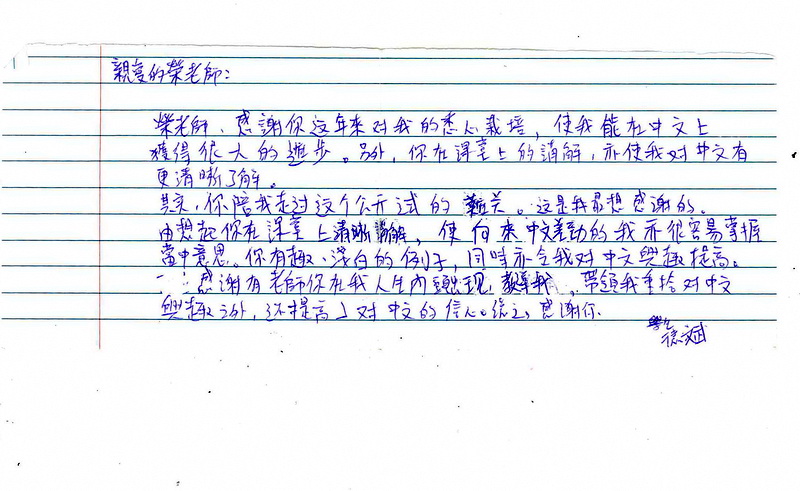 親爱的榮老師:
榮老師，感謝你这年来对我的悉心栽培，使我能在中文上
獲得很大的進步。另外，你在課堂上的講解，亦使我对中文有
更清晰了解。
其次，你陪我走过这个公开试的難关。这是我最想感谢的。
由想起你在課堂上清晰講解，使向来中文差劲的我亦很容易掌握
當中意思。你有趣、浅白的例子，同時亦令我对中文興趣提高。
感谢有老師你在我人生內出现，教導我，帶領我重拾对中文
興趣之外，还提高了对中文的信心。總之，感谢你
學生